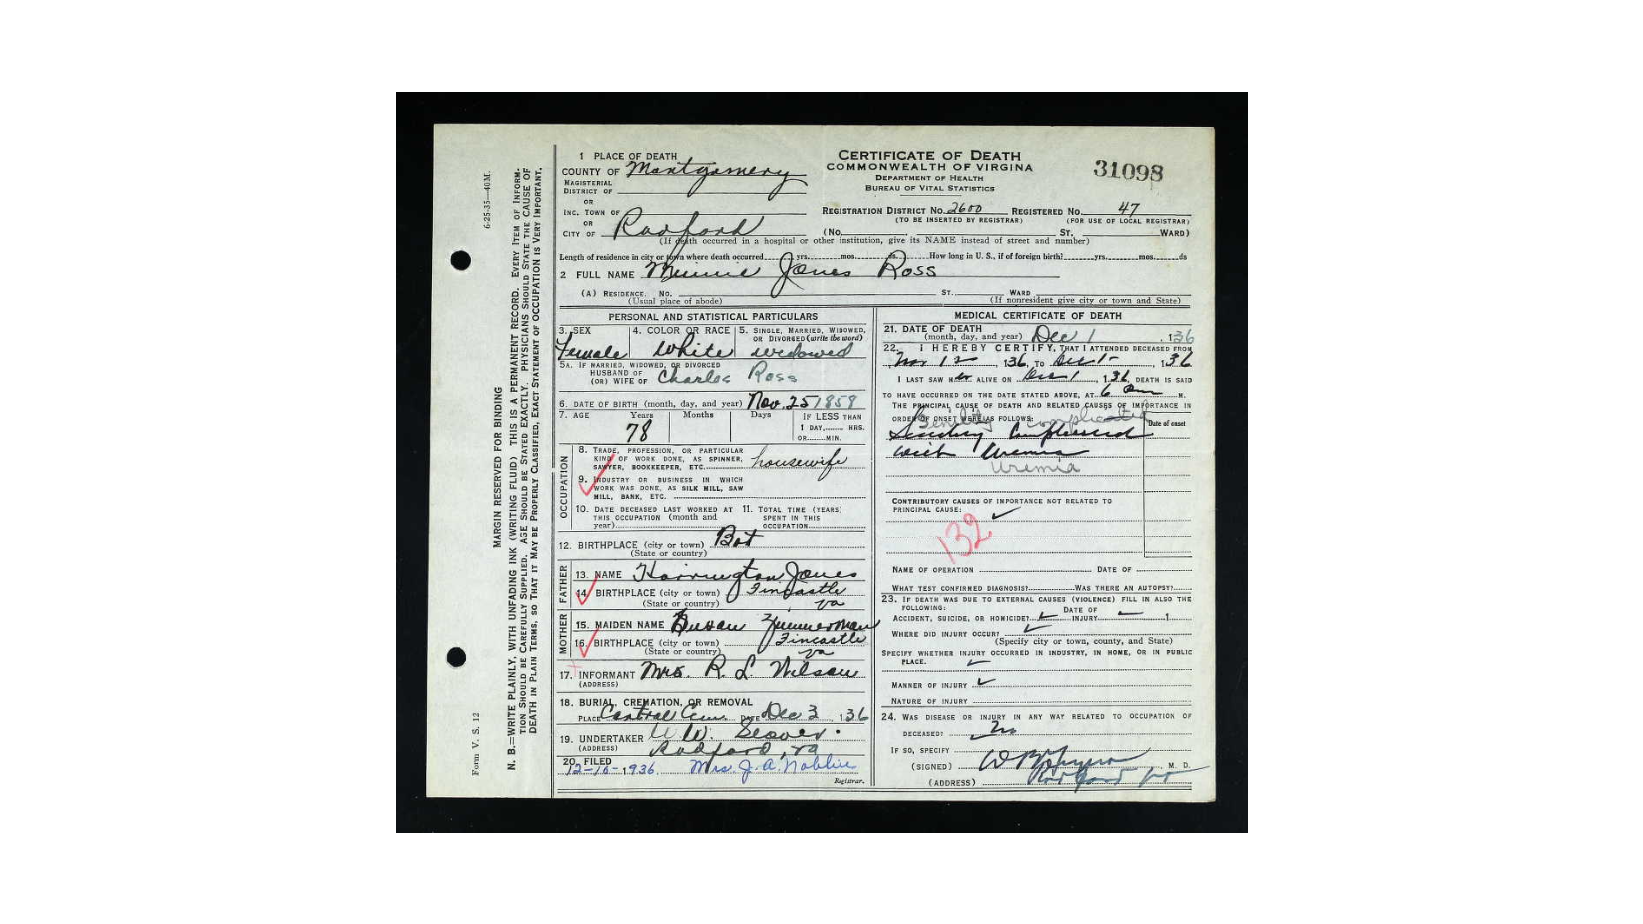 6-25-35—40M.
MARGIN RESERVED FOR BINDING
N. B.—WRITE PLAINLY, WITH UNFADING INK (WRITING FLUID) THIS IS A PERMANENT RECORD. EVERY ITEM OF INFORM-
TION SHOULD BE CAREFULLY SUPPLIED. AGE SHOULD BE STATED EXACTLY. PHYSICIANS SHOULD STATE THE CAUSE OF
DEATH IN PLAIN TERMS, SO THAT IT MAY BE PROPERLY CLASSIFIED. EXACT STATEMENT OF OCCUPATION IS VERY IMPORTANT.
Form V. S. 12
CERTIFICATE OF DEATH
COMMONWEALTH OF VIRGINA
DEPARTMENT OF HEALTH
BUREAU OF VITAL STATISTICS
31098
1 PLACE OF DEATH
COUNTY OF Montgomery
MAGISTERIAL
DISTRICT OF
OR
INC. TOWN OF
OR
CITY OF Radford
REGISTRATION DISTRICT NO. 2600 REGISTERED NO. 47
(TO BE INSERTED BY REGISTRAR) (FOR USE OF LOCAL REGISTRAR)
(No. ST. WARD)
(If death occurred in a hospital or other institution, give its NAME instead of street and number)
Length of residence in city or town where death occurred yrs. mos. ds. How long in U. S., if of foreign birth? yrs. mos. ds
2 FULL NAME Minnie Jones Ross
(A) RESIDENCE. NO. ST. WARD
(Usual place of abode) (If nonresident give city or town and State)
PERSONAL AND STATISTICAL PARTICULARS
3. SEX Female
4. COLOR OR RACE White
5. SINGLE, MARRIED, WIDOWED, OR DIVORCED (write the word) widowed
5A. IF MARRIED, WIDOWED, OR DIVORCED
HUSBAND OF
(OR) WIFE OF Charles Ross
6. DATE OF BIRTH (month, day, and year) Nov. 25 1858
7. AGE Years Months Days IF LESS THAN
78 1 DAY, HRS.
OR MIN.
OCCUPATION
8. TRADE, PROFESSION, OR PARTICULAR
KIND OF WORK DONE, AS SPINNER,
SAWYER, BOOKKEEPER, ETC. housewife
9. INDUSTRY OR BUSINESS IN WHICH
WORK WAS DONE, AS SILK MILL, SAW
MILL, BANK, ETC.
10. DATE DECEASED LAST WORKED AT
THIS OCCUPATION (month and
year)
11. TOTAL TIME (YEARS)
SPENT IN THIS
OCCUPATION
12. BIRTHPLACE (city or town) Bot
(State or country)
FATHER
13. NAME Harrington Jones
14. BIRTHPLACE (city or town) Fincastle
(State or country) Va
MOTHER
15. MAIDEN NAME Susan Zimmerman
16. BIRTHPLACE (city or town) Fincastle
(State or country) Va
17. INFORMANT Mrs. R. L. Wilson
(ADDRESS)
18. BURIAL, CREMATION, OR REMOVAL
PLACE Central Cem. DATE Dec 3, 36
19. UNDERTAKER
(ADDRESS) Radford, Va
20. FILED 12-16-1936. Mrs. J. A. Noblin
Registrar.
MEDICAL CERTIFICATE OF DEATH
21. DATE OF DEATH
(month, day, and year) Dec 1, 136
22. I HEREBY CERTIFY, THAT I ATTENDED DECEASED FROM
Nov 12, 136 TO Dec 1, 136
I LAST SAW HER ALIVE ON Dec 1, 136, DEATH IS SAID
TO HAVE OCCURRED ON THE DATE STATED ABOVE, AT 6 M.
THE PRINCIPAL CAUSE OF DEATH AND RELATED CAUSES OF IMPORTANCE IN
ORDER OF ONSET WERE AS FOLLOWS: Date of onset
Senility complicated
Senility Complicated
with Uremia
Uremia
CONTRIBUTORY CAUSES OF IMPORTANCE NOT RELATED TO
PRINCIPAL CAUSE:
132
NAME OF OPERATION DATE OF
WHAT TEST CONFIRMED DIAGNOSIS? WAS THERE AN AUTOPSY?
23. IF DEATH WAS DUE TO EXTERNAL CAUSES (VIOLENCE) FILL IN ALSO THE
FOLLOWING:
ACCIDENT, SUICIDE, OR HOMICIDE? DATE OF INJURY 1
WHERE DID INJURY OCCUR?
(Specify city or town, county, and State)
SPECIFY WHETHER INJURY OCCURRED IN INDUSTRY, IN HOME, OR IN PUBLIC
PLACE.
MANNER OF INJURY
NATURE OF INJURY
24. WAS DISEASE OR INJURY IN ANY WAY RELATED TO OCCUPATION OF
DECEASED? No
IF SO, SPECIFY
(SIGNED) M. D.
(ADDRESS) Radford Va